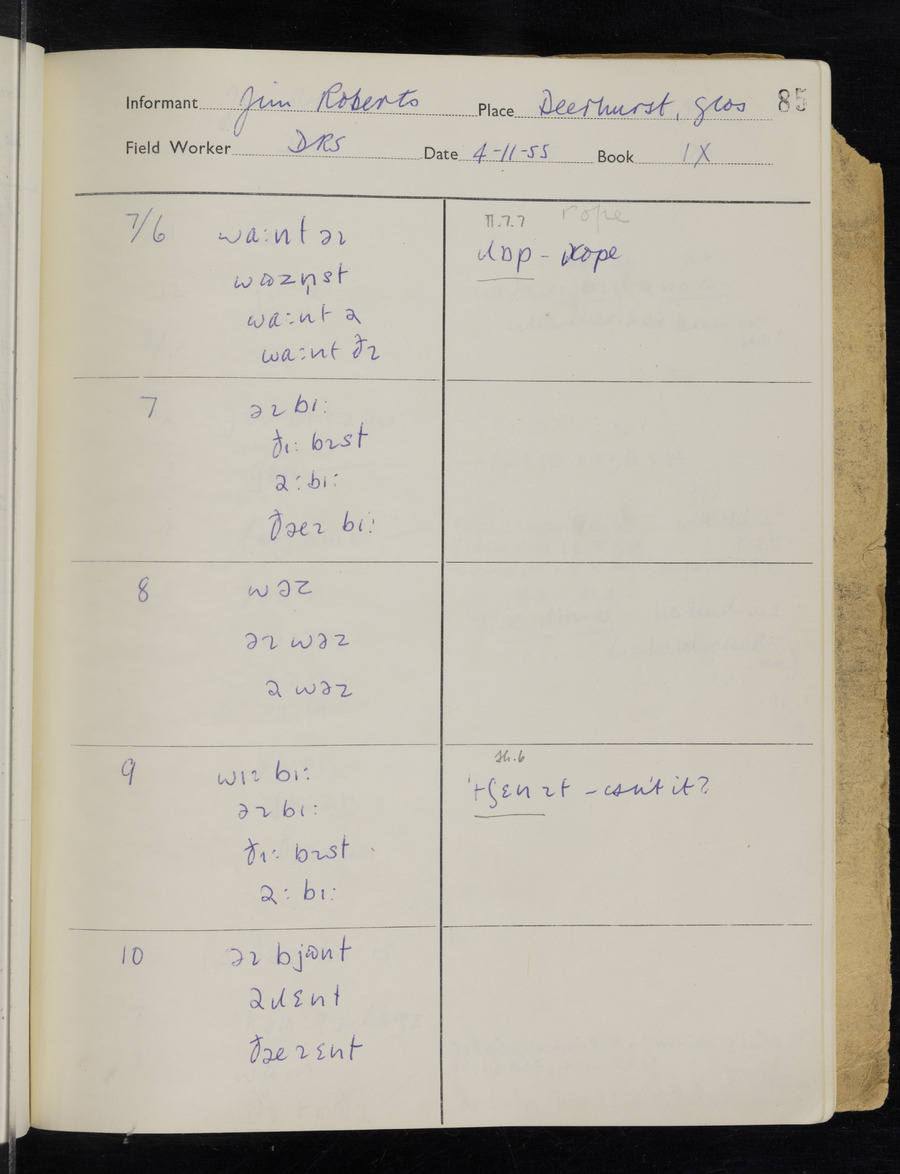 Informant Jim Roberts Place Deerhurst, Glos 85
Field Worker DRS Date 4-11-55 Book IX
7/6 wɑːnt əɪ
wɒzn̩st
wɑːnt ə
wɑːnt ðɪ
II.7.7 rope
ɹɒp - rope
7 əɪ biː
ðiː bɪst
əː biː
ðəeɪ biː
8 wəz
əɪ wəz
ə wəz
9 wɪɪ biː
əɪ biː
ðiː bɪst
əː biː
'tʃɛn ɪt - isn't it?
10 əɪ bjɒnt
əɹɛnt